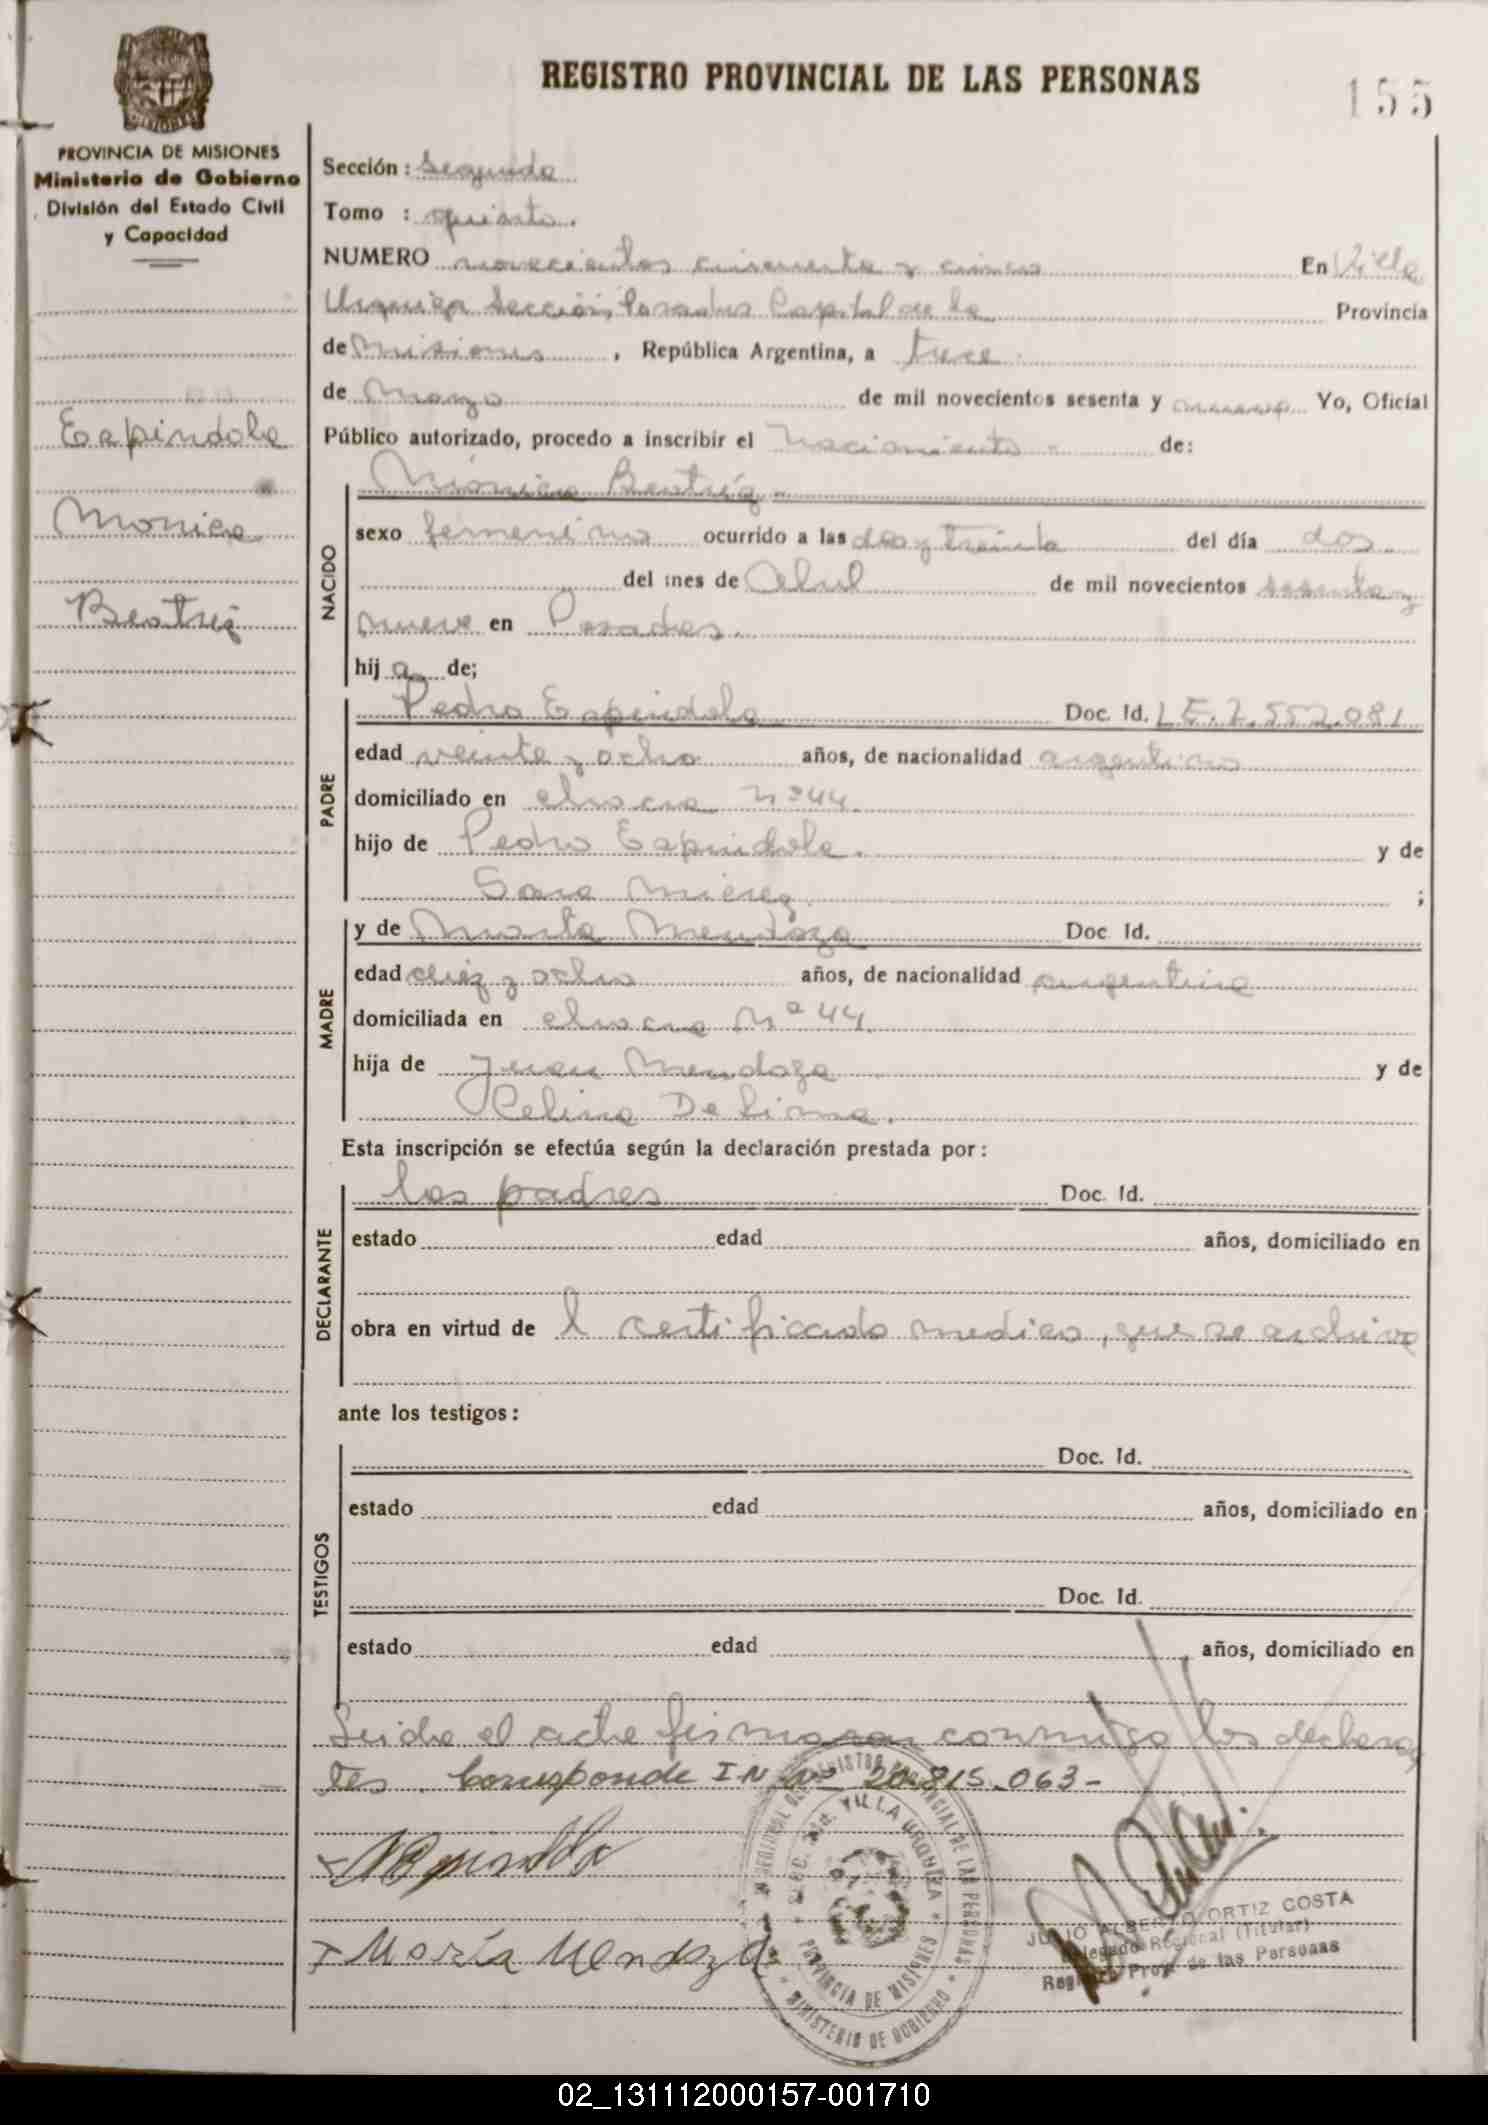 REGISTRO PROVINCIAL DE LAS PERSONAS
155
MISIONES
PROVINCIA DE MISIONES
Ministerio de Gobierno
División del Estado Civil
y Capacidad
Espindola
Monica
Beatriz
Sección: Segunda
Tomo : quinto.
NUMERO novecientos cincuenta y cinco En Villa
Urquiza Sección, Posadas Capital de la Provincia
de Misiones, República Argentina, a trece
de Marzo de mil novecientos sesenta y nueve Yo, Oficial
Público autorizado, procedo a inscribir el Nacimiento de:
NACIDO
Mónica Beatriz
sexo femenino ocurrido a las dos y treinta del día dos
del mes de Abril de mil novecientos sesenta y
nueve en Posadas.
hija de;
PADRE
Pedro Espindola Doc. Id. L.E. 7.552.081
edad veinte y ocho años, de nacionalidad argentino
domiciliado en chacra Nº 44.
hijo de Pedro Espindola. y de
Sara Mierez ;
MADRE
y de Marta Mendoza Doc Id.
edad diez y ocho años, de nacionalidad argentina
domiciliada en chacra Nº 44.
hija de Juan Mendoza y de
Celina De Lima.
Esta inscripción se efectúa según la declaración prestada por:
DECLARANTE
los padres Doc. Id.
estado edad años, domiciliado en
obra en virtud de l certificado medico, que se archiva
ante los testigos:
TESTIGOS
Doc. Id.
estado edad años, domiciliado en
Doc. Id.
estado edad años, domiciliado en
Leida el acta firmaron conmigo los declaran
tes. Corresponde I N Nº 20.815.063-
María Mendoza
PROVINCIAL DE LAS PERSONAS
VILLA URQUIZA
PROVINCIA DE MISIONES
MINISTERIO DE GOBIERNO
JULIO ALBERTO ORTIZ COSTA
Delegado Regional (Titular)
Registro Prov. de las Personas
02_131112000157-001710